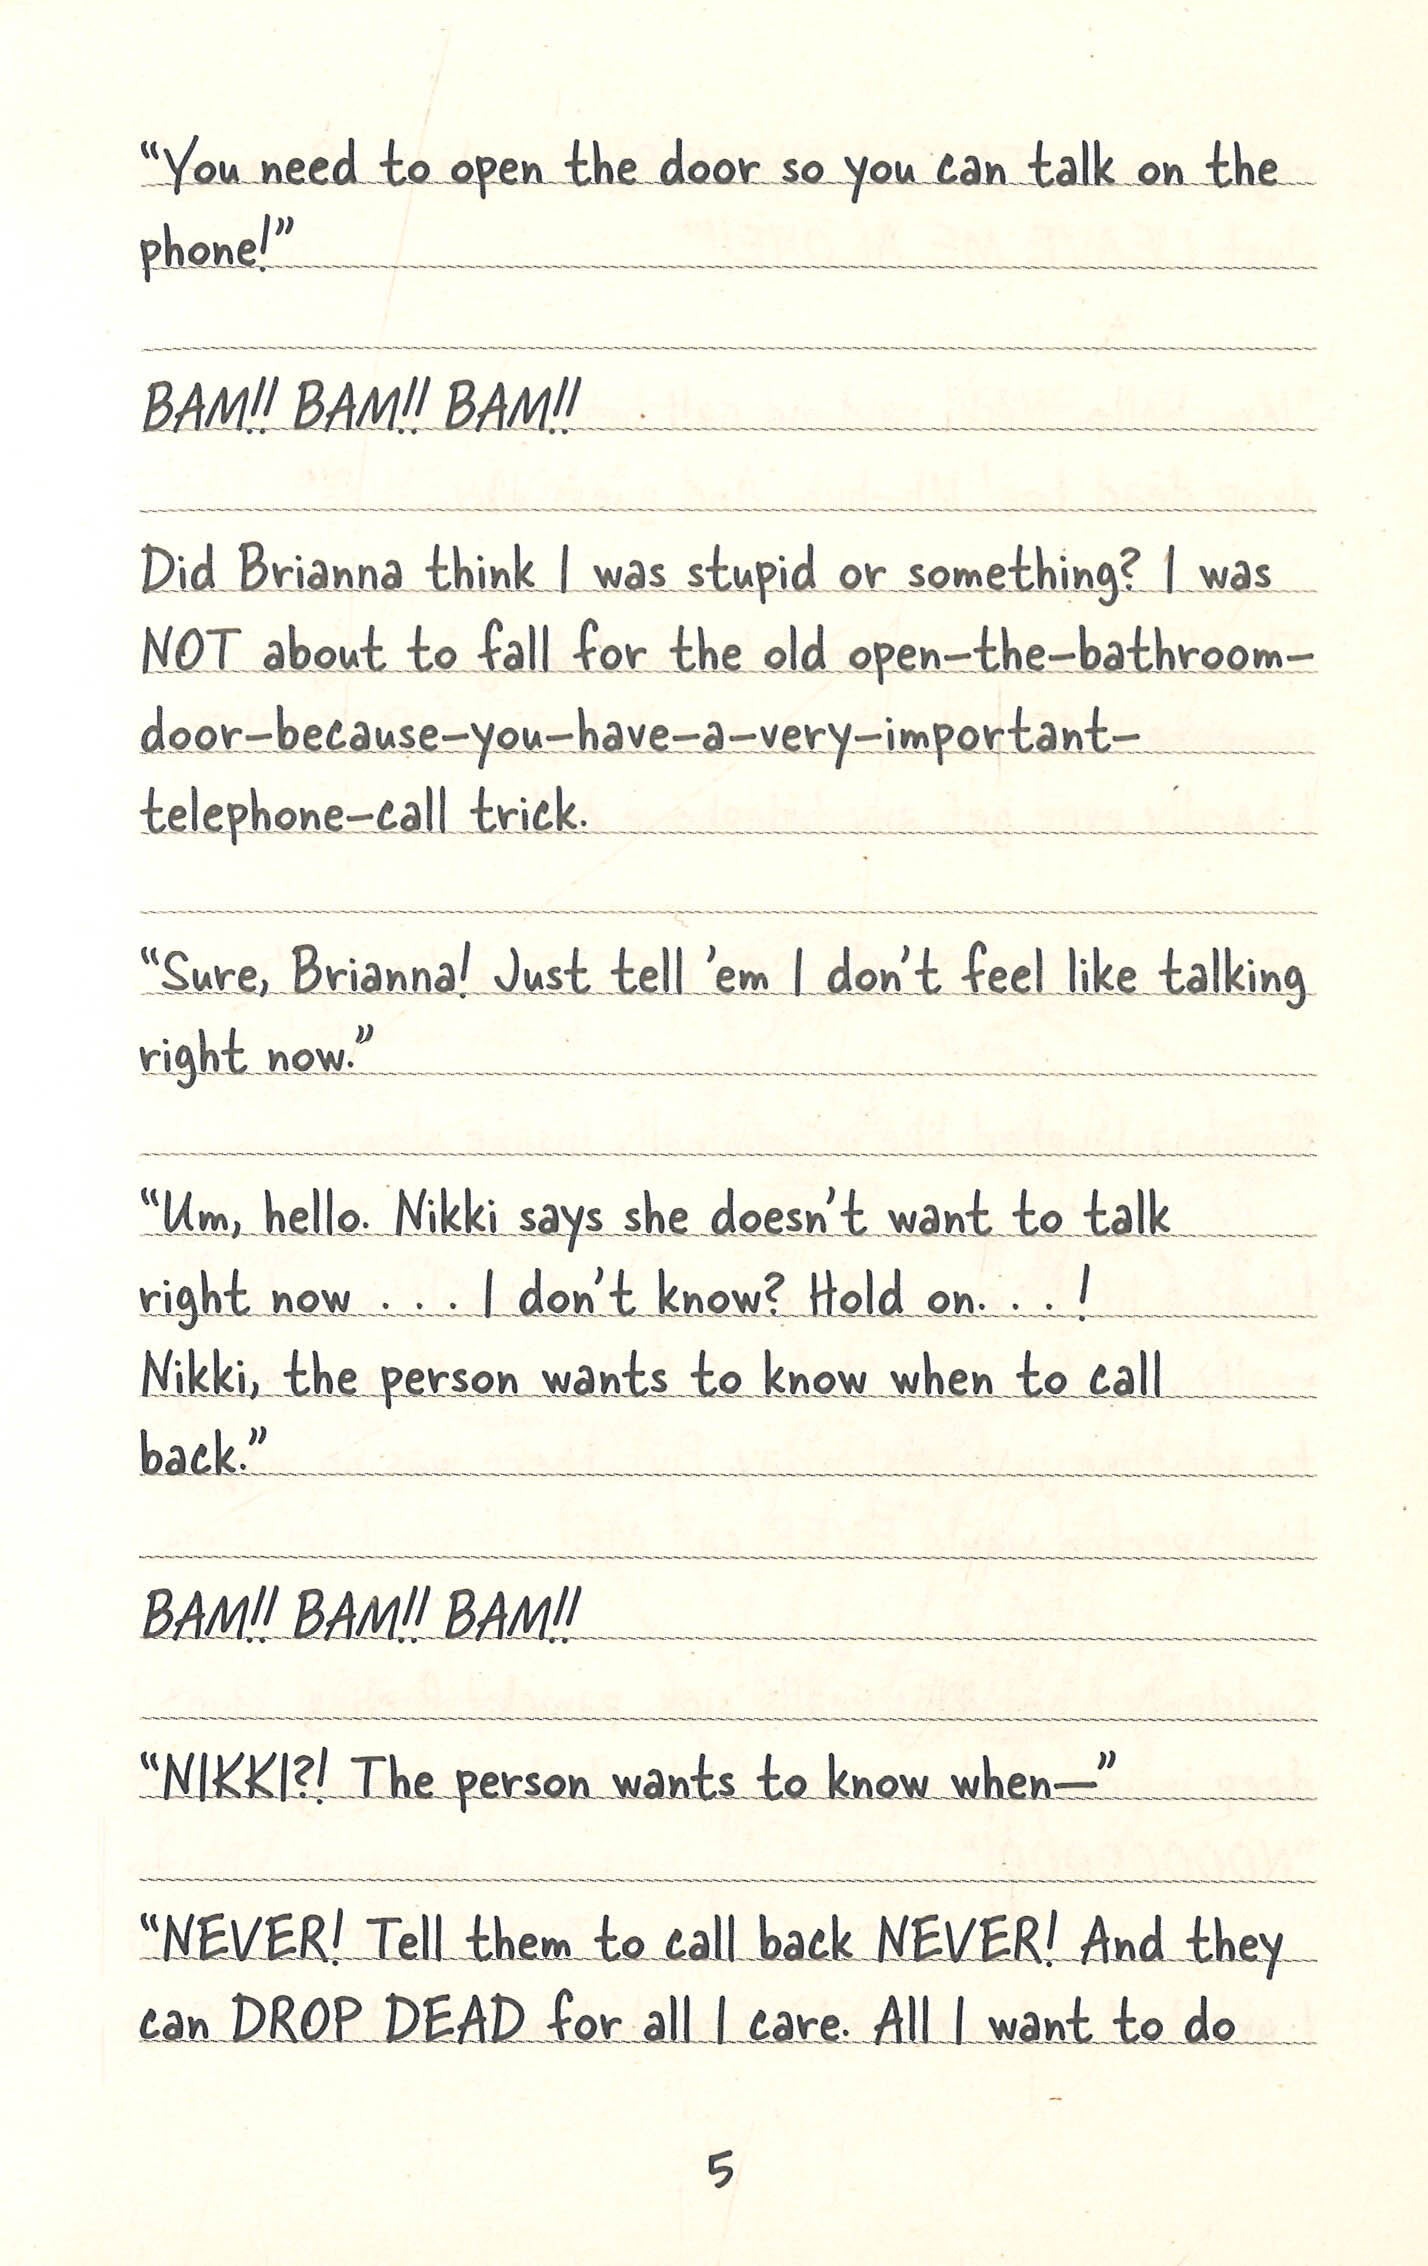 “You need to open the door so you can talk on the
phone!”
BAM!! BAM!! BAM!!
Did Brianna think I was stupid or something? I was
NOT about to fall for the old open–the–bathroom–
door–because–you–have–a–very–important–
telephone–call trick.
“Sure, Brianna! Just tell ’em I don’t feel like talking
right now.”
“Um, hello. Nikki says she doesn’t want to talk
right now . . . I don’t know? Hold on. . . !
Nikki, the person wants to know when to call
back.”
BAM!! BAM!! BAM!!
“NIKKI?! The person wants to know when—”
“NEVER! Tell them to call back NEVER! And they
can DROP DEAD for all I care. All I want to do
5